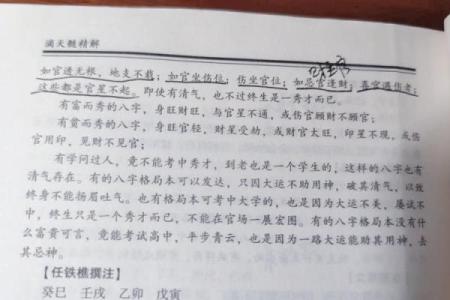 滴天髓精解
如官透无根，地支不载；如官坐伤位，伤坐官位；如忌官逢财；喜官遇伤者；
这些都是官星不起。即使有清气，也不过终生是一秀才而已。
有富而秀的八字，身旺财旺，与官星不通，或伤官顾财不顾官；
有贫而秀的八字，身旺官轻，财星受劫，或财官太旺，印星不现，或伤
官用印，见财不见官；
有学问过人，竟不能考中秀才，到老也是一个学生的，这样的八字也有
清气存在。有的八字格局本可以发达，只因大运不助用神，破其清气，以致
终身不能扬眉吐气。也有格局本可考中大学的，也是因为大运不美，屡试不
中，终生只是一个秀才而已，不能在官场一展宏图。有的八字格局本没有什
么富贵可言，竟能考试高中，平步青云，也是因为一路大运能助其用神，去
其忌神。
【任铁樵撰注】
癸巳 壬戌 乙卯 戊寅